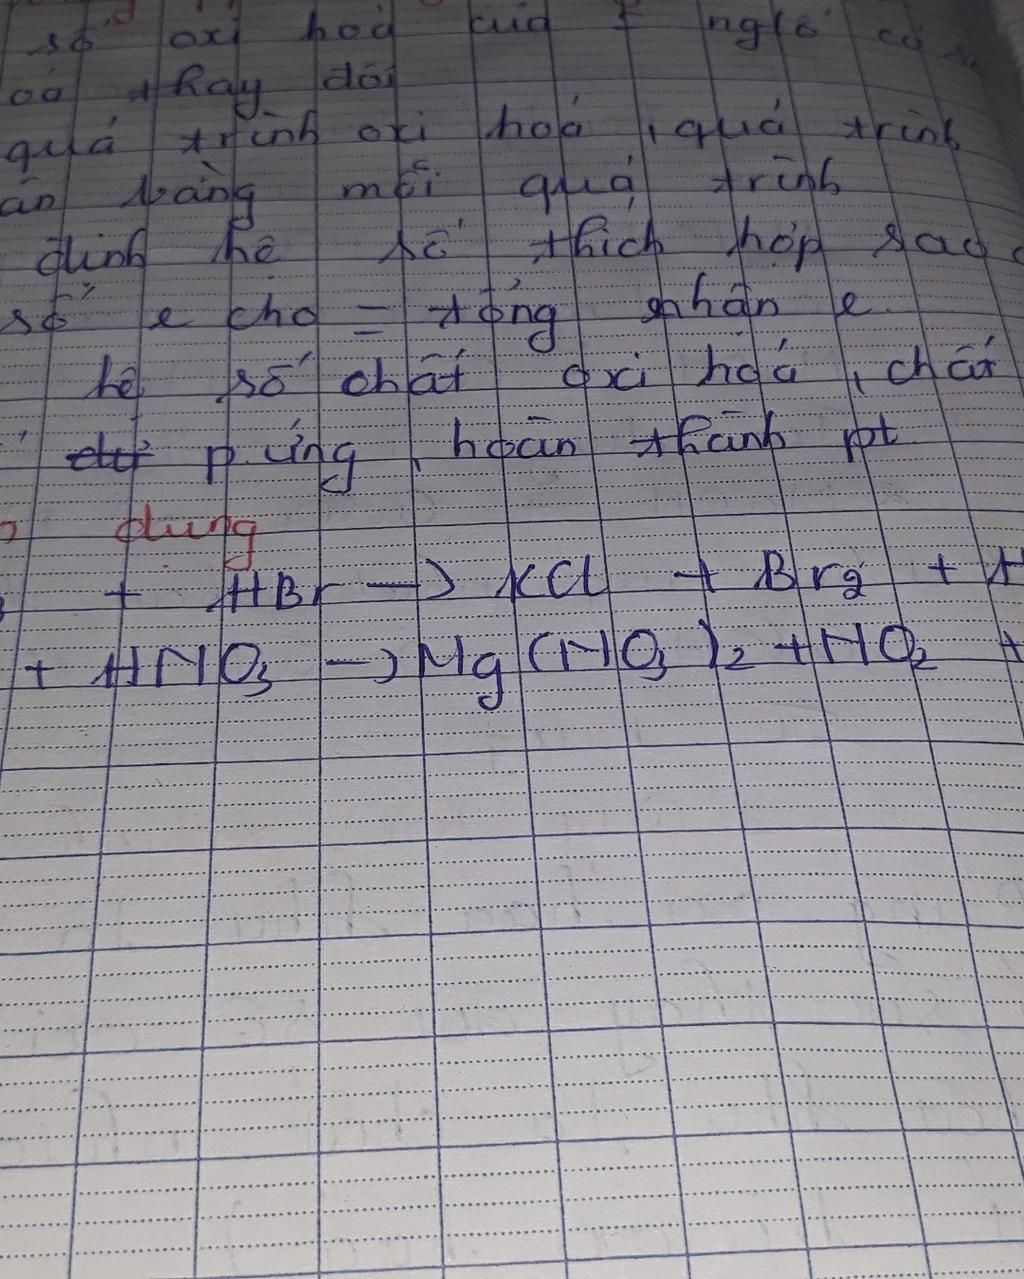 số oxi hoá của ngtố có
oá thay đổi
quá trình oxi hoá, quá trình
ân bằng mỗi quá trình
định hệ số thích hợp sao
số e cho = tổng nhận e.
hệ số chất oxi hoá, chất
p.ứng, hoàn thành pt
dung
+ HBr → KCl + Br2 + H
+ HNO3 → Mg(NO3)2 + NO2 +